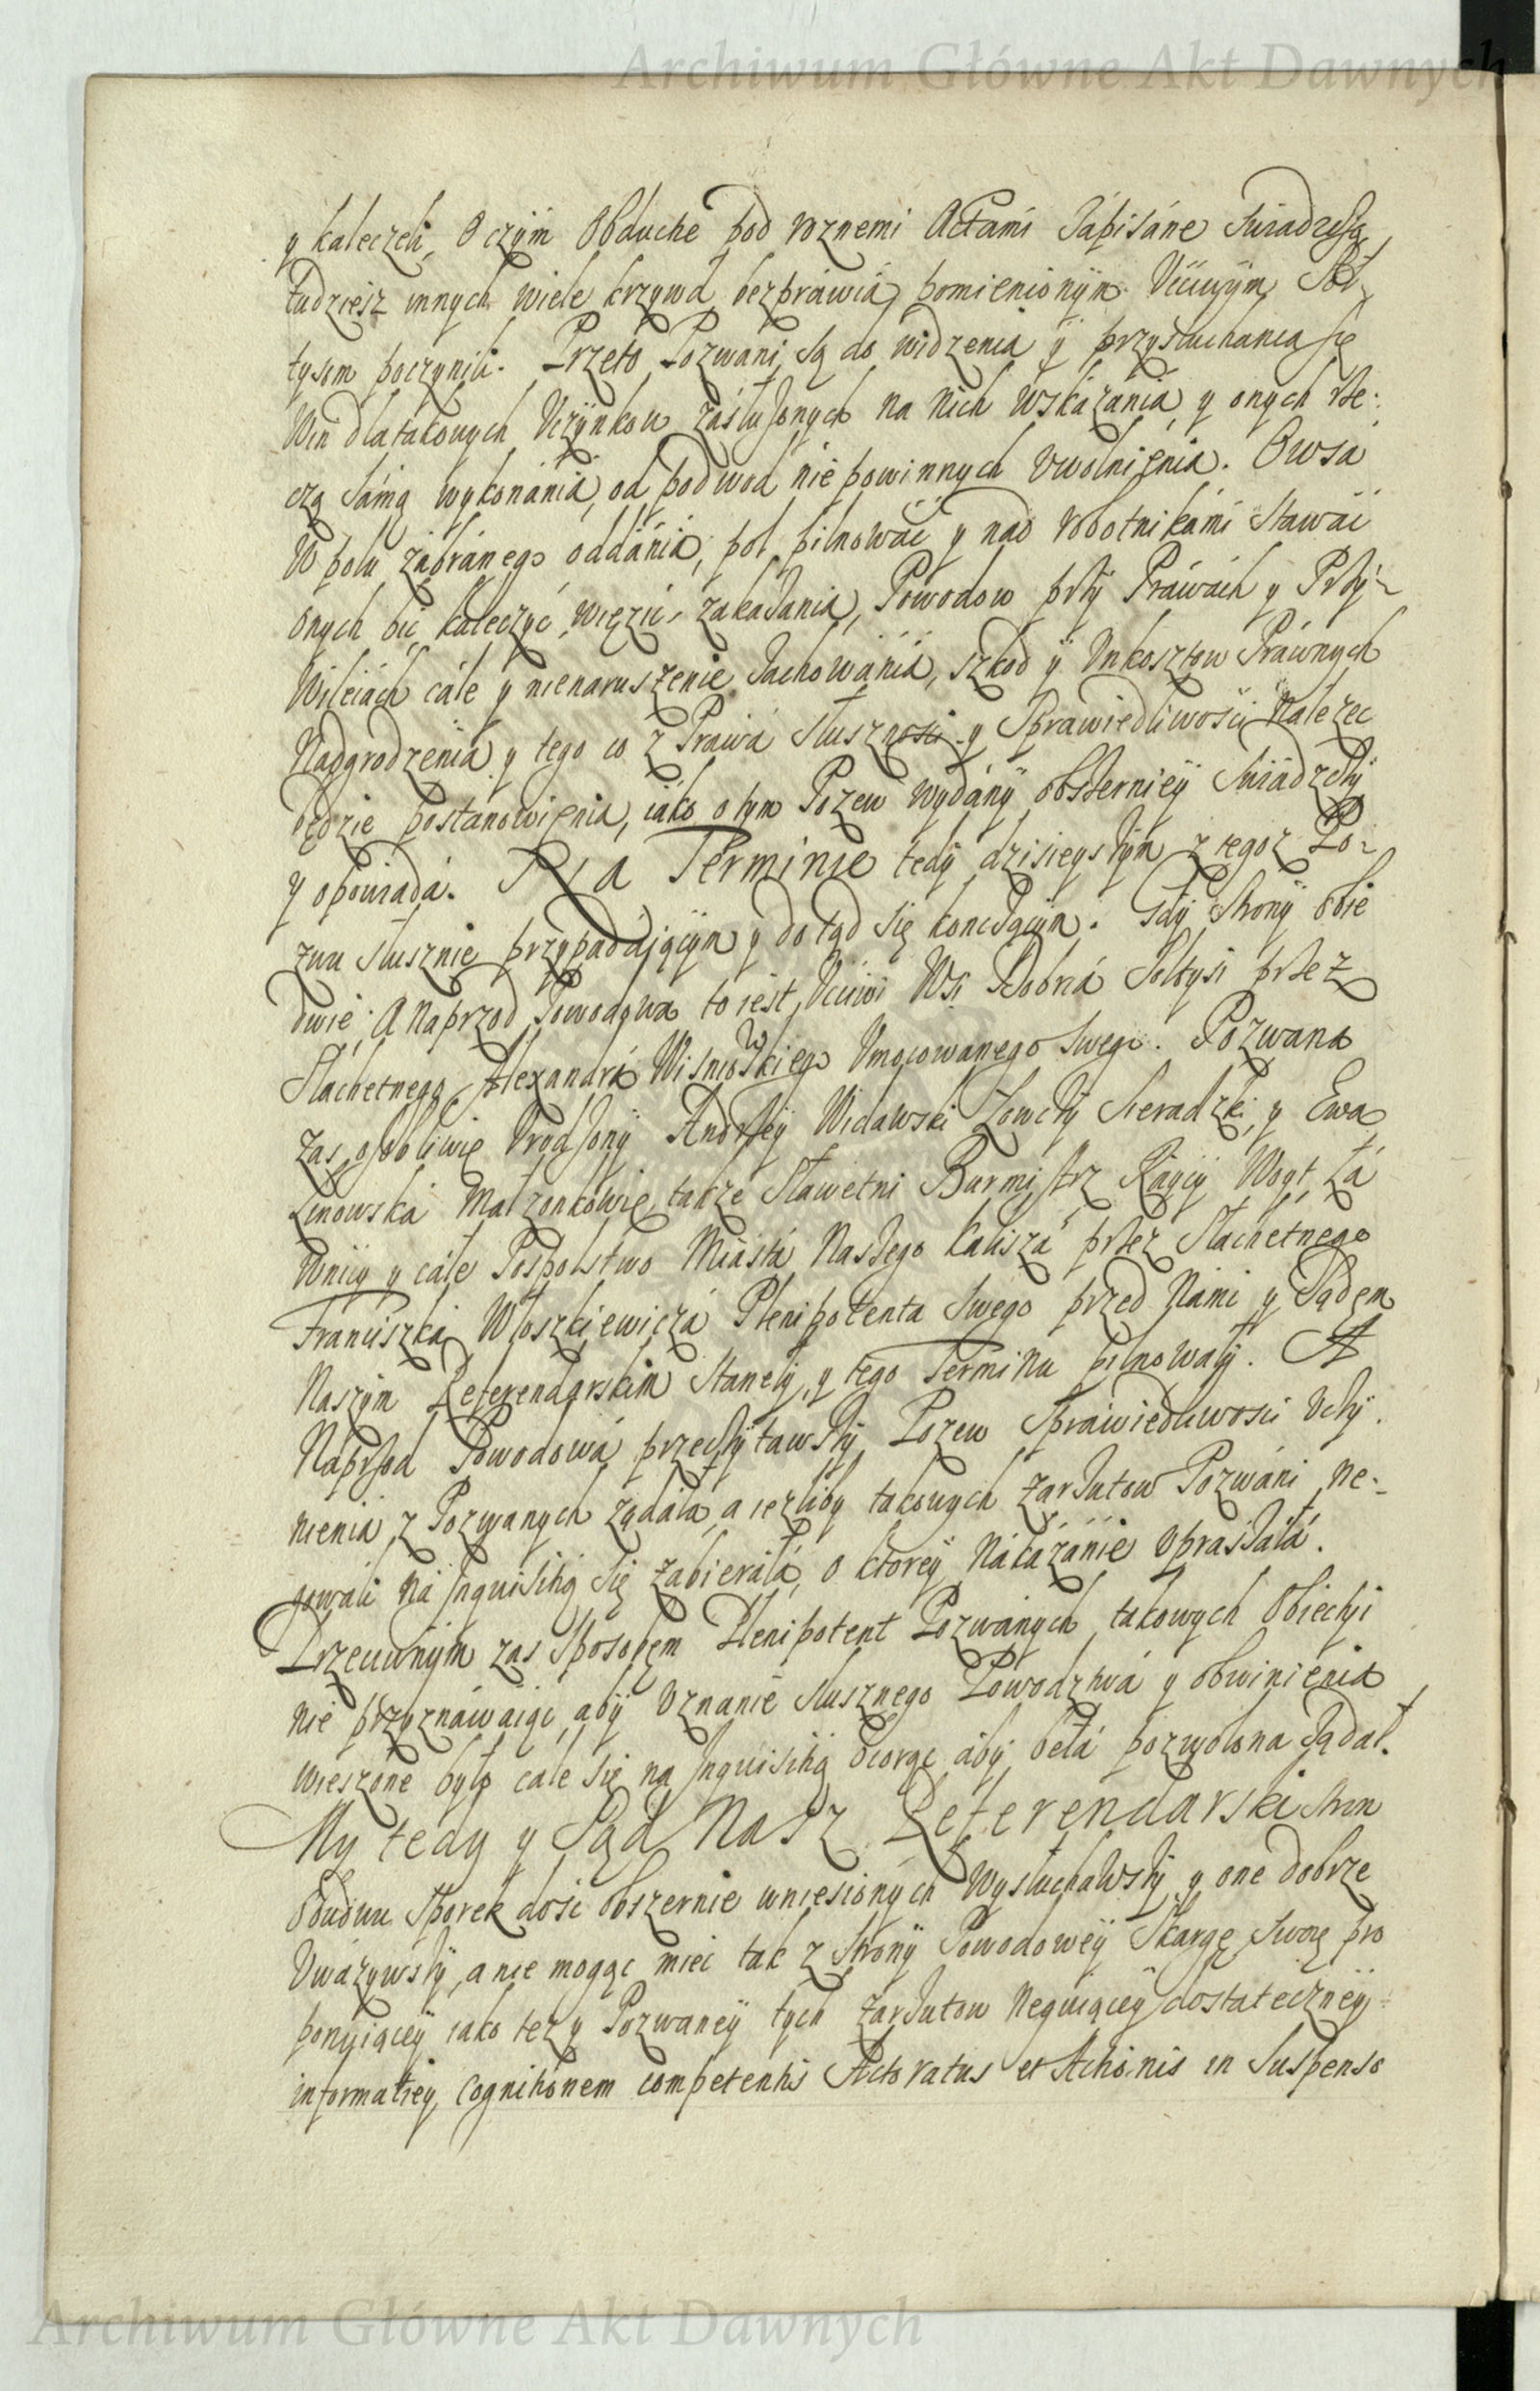 Archiwum Główne Akt Dawnych
y kaleczeli, O czym Obdukcye pod roznemi Actami Zapisane swiadczą,
tudziesz innych wiele krzywd bezprawia pomienionym Uczciwym Soł-
tysom poczynili. Przeto Pozwani są do widzenia y przysłuchania się
Win dla takowych Uczynkow zasłużonych na nich wskazania, y onych rze-
czą samą wykonania, od podwod niepowinnych uwolnienia. Owsa
W polu zabranego oddania, pol pilnować y nad robotnikami stawać
onych bić kaleczyć, więzić, zakazania, Powodow przy Prawach y Przy-
Wileiach cale y nienaruszenie zachowania, szkod y Unkosztow Prawnych
Nadgrodzenia y tego co z Prawa Słuszności y Sprawiedliwości należec
będzie postanowienia, iako o tym Pozew wydany obszerniey swiadczy
y opowiada. Na Terminie tedy dzisieyszym z tegoż Po-
zwu słusznie przypadaiącym y dotąd się kończącym. Gdy strony obie
dwie. A naprzod Powodowa to iest Uczciwi Wsi Dobrá Sołtysi przez
Slachetnego Alexandra Wisniowskiego Umocowanego swego. Pozwana
zas osobliwie Urodzony Andrzey Widawski Łowczy Sieradzki, y Ewa
Linowska Małżonkowie, takze Sławetni Burmistrz Raycy Woyt Ła
wnicy y całe Pospolstwo Miasta Naszego Kalisza przez Slachetnego
Franciszka Włoszkiewicza Plenipotenta swego przed Nami y Sądem
Naszym Referendarskim stanęły, y tego Terminu pilnowały. A
Naprzod Powodowa przeczytawszy Pozew Sprawiedliwości Uczy-
nienia z Pozwanych żądała, a iezliby takowych zarzutow Pozwani ne-
gowali na Inquisitią się zabierała, o ktorey nakazanie upraszała.
Przeciwnym zas sposobem Plenipotent Pozwanych takowych Obiectyi
nie przyznawaiąc, aby uznanie słusznego Powodztwa y obwinienia
wieszone było cale się na Inquisitią biorąc aby beła pozwolona żądał.
My tedy y Sąd Nasz Referendarski stron
Obudwu Sporek dość obszernie wniesionych wysłuchawszy y one dobrze
Uważywszy, a nie mogąc mieć tak z strony Powodowey Skargę swoię pro
ponuiącey iako też y Pozwaney tych zarzutow neguiącey dostateczney
informatiey, Cognitionem competentis Actoratus et Actionis in Suspenso
Archiwum Główne Akt Dawnych